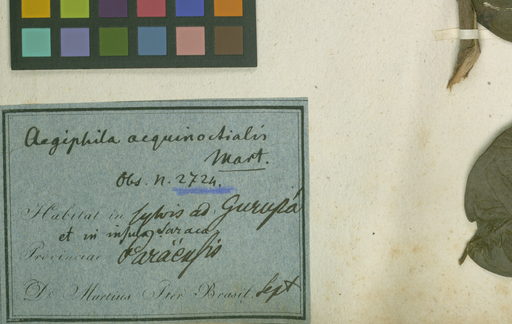 Aegiphila aequinoctialis
Mart.
Obs. n. 2724.
Habitat in sylvis ad Gurupá
et in insula
Provinciae Paraënsis
Dr. Martius Iter Brasil. Sept